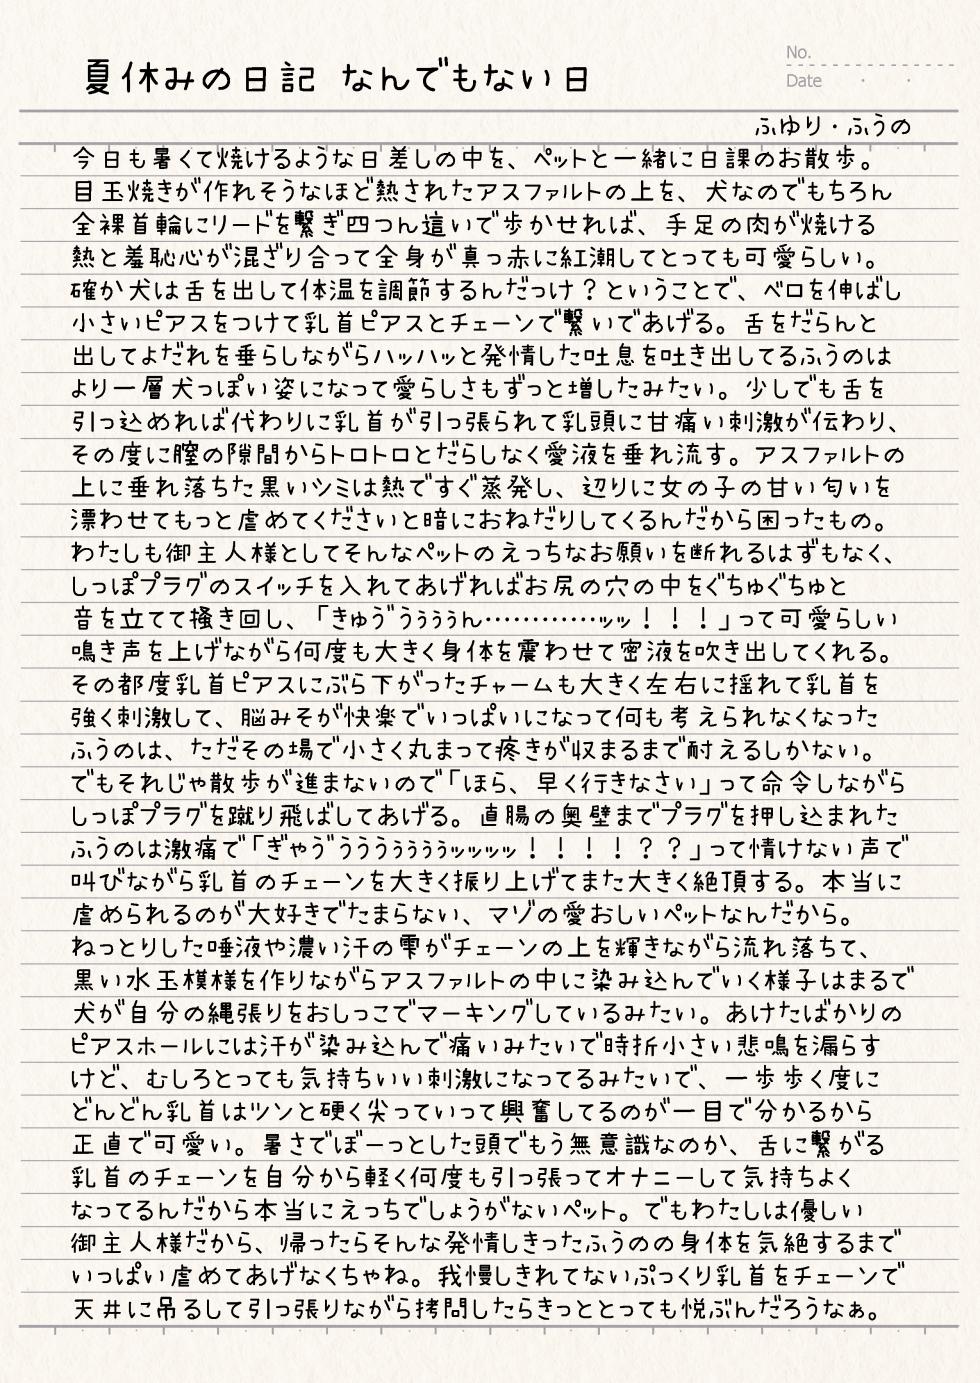 No.
Date ・ ・
夏休みの日記 なんでもない日
ふゆり・ふうの
今日も暑くて焼けるような日差しの中を、ペットと一緒に日課のお散歩。
目玉焼きが作れそうなほど熱されたアスファルトの上を、犬なのでもちろん
全裸首輪にリードを繋ぎ四つん這いで歩かせれば、手足の肉が焼ける
熱と羞恥心が混ざり合って全身が真っ赤に紅潮してとっても可愛らしい。
確か犬は舌を出して体温を調節するんだっけ？ということで、ベロを伸ばし
小さいピアスをつけて乳首ピアスとチェーンで繋いであげる。舌をだらんと
出してよだれを垂らしながらハッハッと発情した吐息を吐き出してるふうのは
より一層犬っぽい姿になって愛らしさもずっと増したみたい。少しでも舌を
引っ込めれば代わりに乳首が引っ張られて乳頭に甘痛い刺激が伝わり、
その度に膣の隙間からトロトロとだらしなく愛液を垂れ流す。アスファルトの
上に垂れ落ちた黒いシミは熱ですぐ蒸発し、辺りに女の子の甘い匂いを
漂わせてもっと虐めてくださいと暗におねだりしてくるんだから困ったもの。
わたしも御主人様としてそんなペットのえっちなお願いを断れるはずもなく、
しっぽプラグのスイッチを入れてあげればお尻の穴の中をぐちゅぐちゅと
音を立てて掻き回し、「きゅゔうぅぅぅん…………ッッ！！！」って可愛らしい
鳴き声を上げながら何度も大きく身体を震わせて密液を吹き出してくれる。
その都度乳首ピアスにぶら下がったチャームも大きく左右に揺れて乳首を
強く刺激して、脳みそが快楽でいっぱいになって何も考えられなくなった
ふうのは、ただその場で小さく丸まって疼きが収まるまで耐えるしかない。
でもそれじゃ散歩が進まないので「ほら、早く行きなさい」って命令しながら
しっぽプラグを蹴り飛ばしてあげる。直腸の奥壁までプラグを押し込まれた
ふうのは激痛で「ぎゃゔうううぅぅぅぅッッッッ！！！！？？」って情けない声で
叫びながら乳首のチェーンを大きく振り上げてまた大きく絶頂する。本当に
虐められるのが大好きでたまらない、マゾの愛おしいペットなんだから。
ねっとりした唾液や濃い汗の雫がチェーンの上を輝きながら流れ落ちて、
黒い水玉模様を作りながらアスファルトの中に染み込んでいく様子はまるで
犬が自分の縄張りをおしっこでマーキングしているみたい。あけたばかりの
ピアスホールには汗が染み込んで痛いみたいで時折小さい悲鳴を漏らす
けど、むしろとっても気持ちいい刺激になってるみたいで、一歩歩く度に
どんどん乳首はツンと硬く尖っていって興奮してるのが一目で分かるから
正直で可愛い。暑さでぼーっとした頭でもう無意識なのか、舌に繋がる
乳首のチェーンを自分から軽く何度も引っ張ってオナニーして気持ちよく
なってるんだから本当にえっちでしょうがないペット。でもわたしは優しい
御主人様だから、帰ったらそんな発情しきったふうのの身体を気絶するまで
いっぱい虐めてあげなくちゃね。我慢しきれてないぷっくり乳首をチェーンで
天井に吊るして引っ張りながら拷問したらきっととっても悦ぶんだろうなぁ。